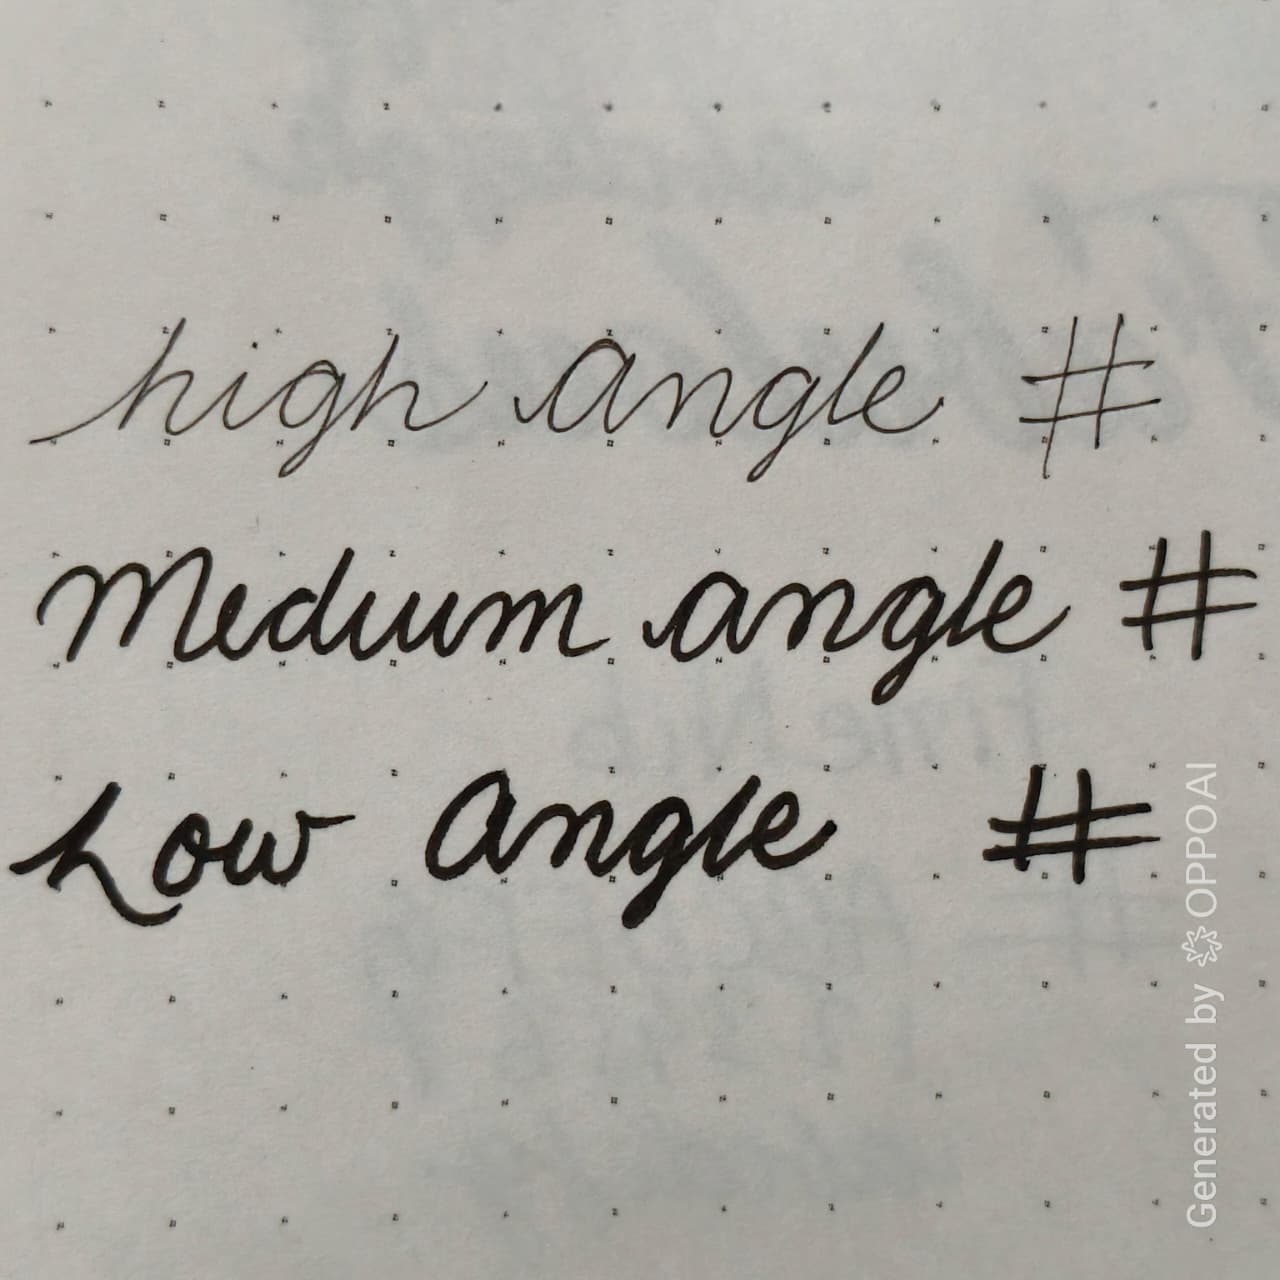 high angle #
Medium angle #
Low Angle #
Generated by OPPOAI